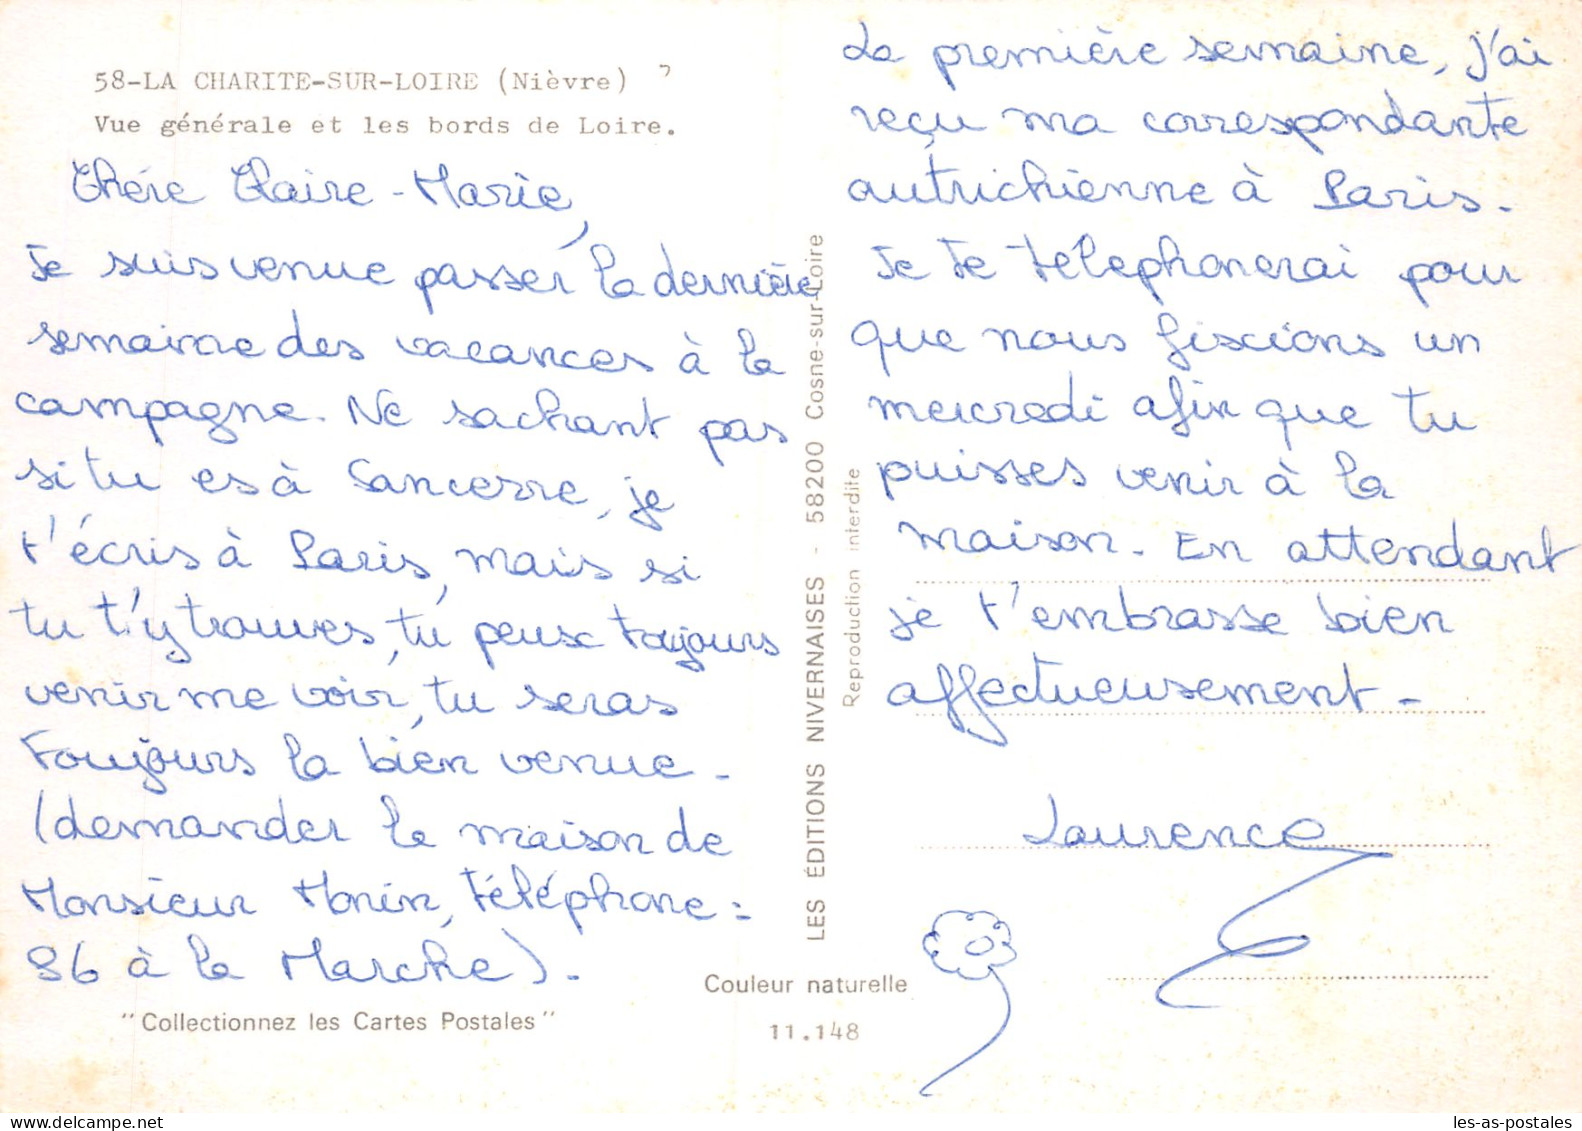 58-LA CHARITE-SUR-LOIRE (Nièvre)
Vue générale et les bords de Loire.
Chére Claire-Marie,
Je suis venue passer la dernière
semaine des vacances à la
campagne. Ne sachant pas
si tu es à Sancerre, je
t'écris à Paris, mais si
tu t'y trouves, tu peux toujours
venir me voir, tu seras
toujours la bien venue.
(demander la maison de
Monsieur Monin, téléphone :
96 à la Marche).
"Collectionnez les Cartes Postales"
LES ÉDITIONS NIVERNAISES - 58200 Cosne-sur-Loire
Reproduction interdite
Couleur naturelle
11.148
La première semaine, j'ai
reçu ma correspondante
autrichienne à Paris.
Je te telephonerai pour
que nous fixions un
mercredi afin que tu
puisses venir à la
maison. En attendant
je t'embrasse bien
affectueusement -
Laurence
les-as-postales